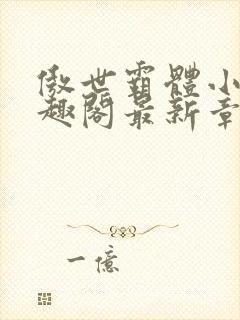 傲世霸體小
趣閣最新章
一億